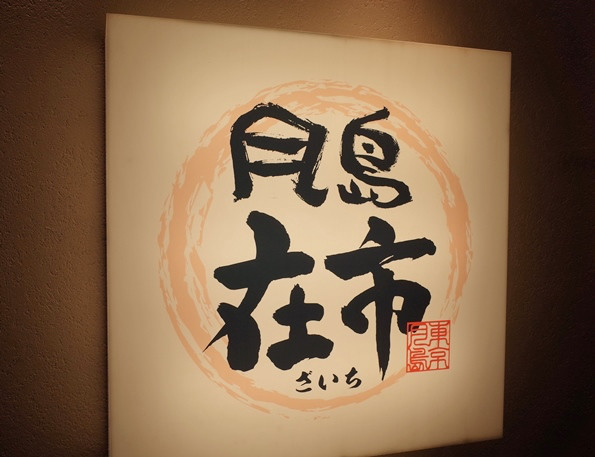 月島
在市
ざいち
東京
月島